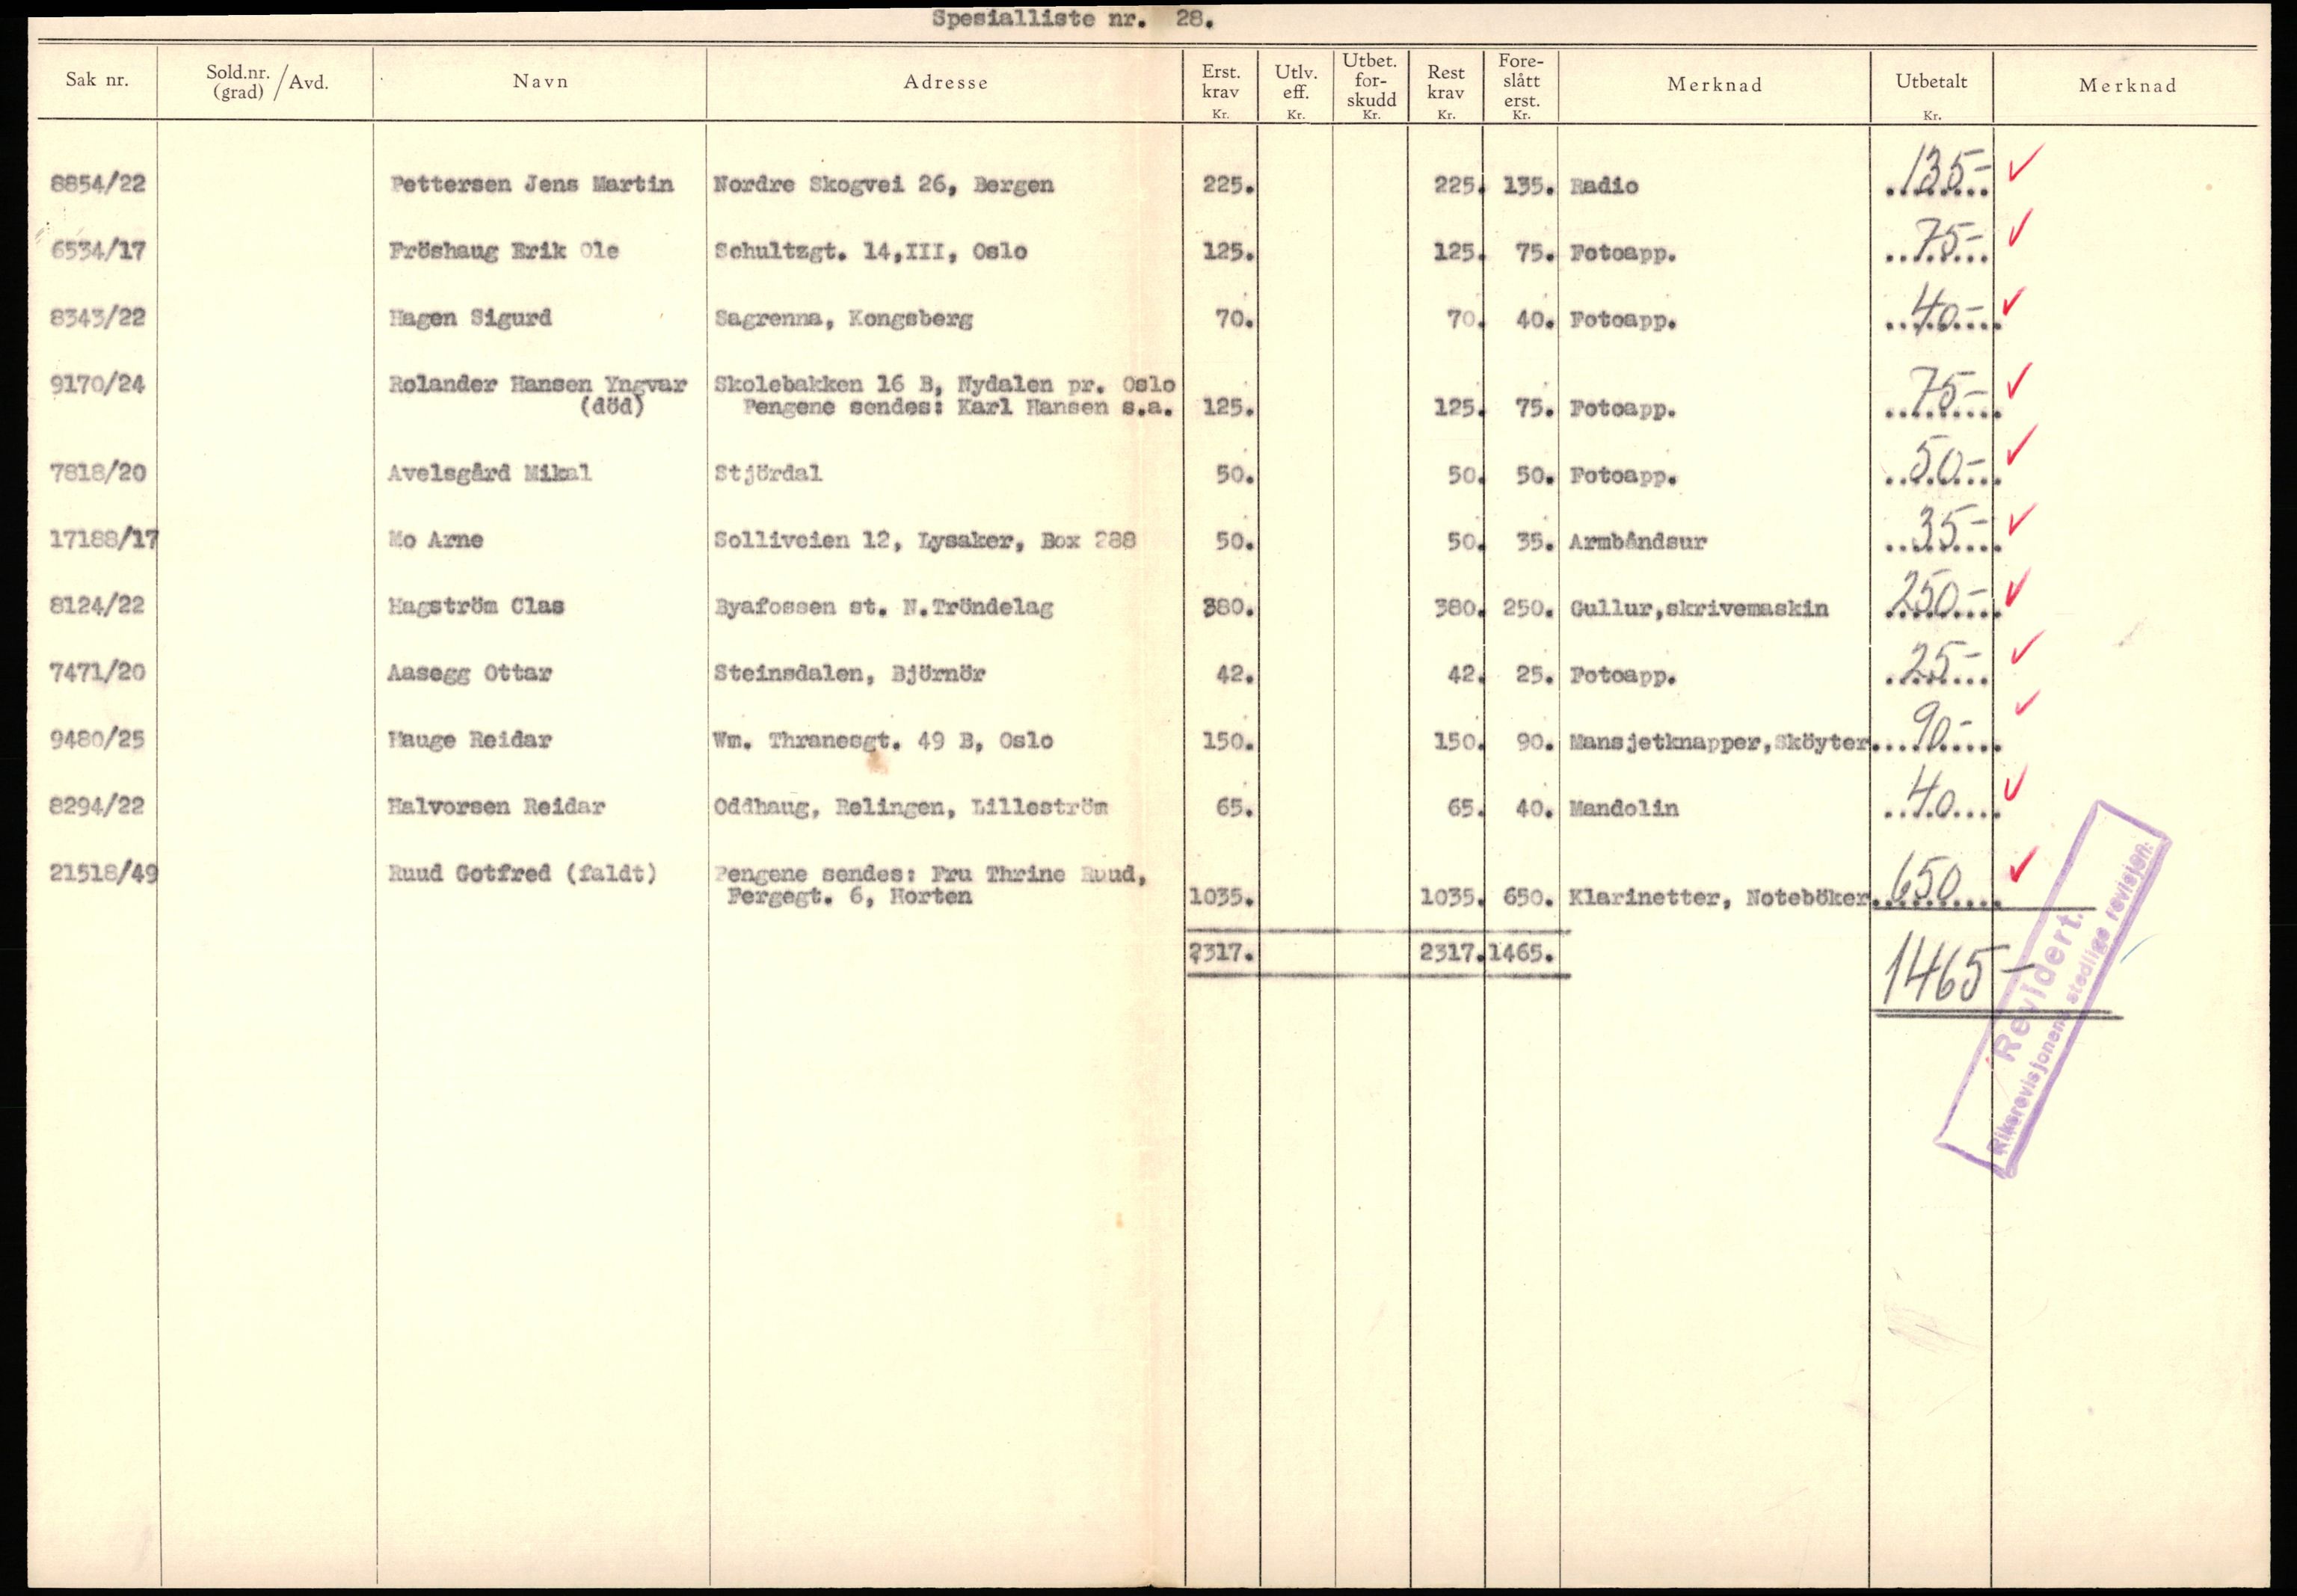 Spesialliste nr. 28.
Sak nr. Sold.nr. (grad) / Avd. Navn Adresse Erst. krav Kr. Utlv. eff. Kr. Utbet. for-skudd Kr. Rest krav Kr. Fore-slått erst. Kr. Merknad Utbetalt Kr. Merknad
8854/22 Pettersen Jens Martin Nordre Skogvei 26, Bergen 225. 225. 135. Radio 135-
6534/17 Fröshaug Erik Ole Schultzgt. 14,III, Oslo 125. 125. 75. Fotoapp. 75-
8343/22 Hagen Sigurd Sagrenna, Kongsberg 70. 70. 40. Fotoapp. 40-
9170/24 Rolander Hansen Yngvar Skolebakken 16 B, Nydalen pr. Oslo
(död) Pengene sendes: Karl Hansen s.a. 125. 125. 75. Fotoapp. 75-
7818/20 Avelsgård Mikal Stjördal 50. 50. 50. Fotoapp. 50-
17188/17 Mo Arne Solliveien 12, Lysaker, Box 288 50. 50. 35. Armbåndsur 35-
8124/22 Hagström Clas Byafossen st. N.Tröndelag 380. 380. 250. Gullur,skrivemaskin 250-
7471/20 Aasegg Ottar Steinsdalen, Björnör 42. 42. 25. Fotoapp. 25-
9480/25 Hauge Reidar Wm. Thranesgt. 49 B, Oslo 150. 150. 90. Mansjetknapper,Sköyter 90-
8294/22 Halvorsen Reidar Oddhaug, Relingen, Lilleström 65. 65. 40. Mandolin 40
21518/49 Ruud Gotfred (faldt) Pengene sendes: Fru Thrine Ruud,
Fergegt. 6, Horten 1035. 1035. 650. Klarinetter, Noteböker 650
2317. 2317. 1465. 1465-
Revidert.
Riksrevisjonens stedlige revisjon.